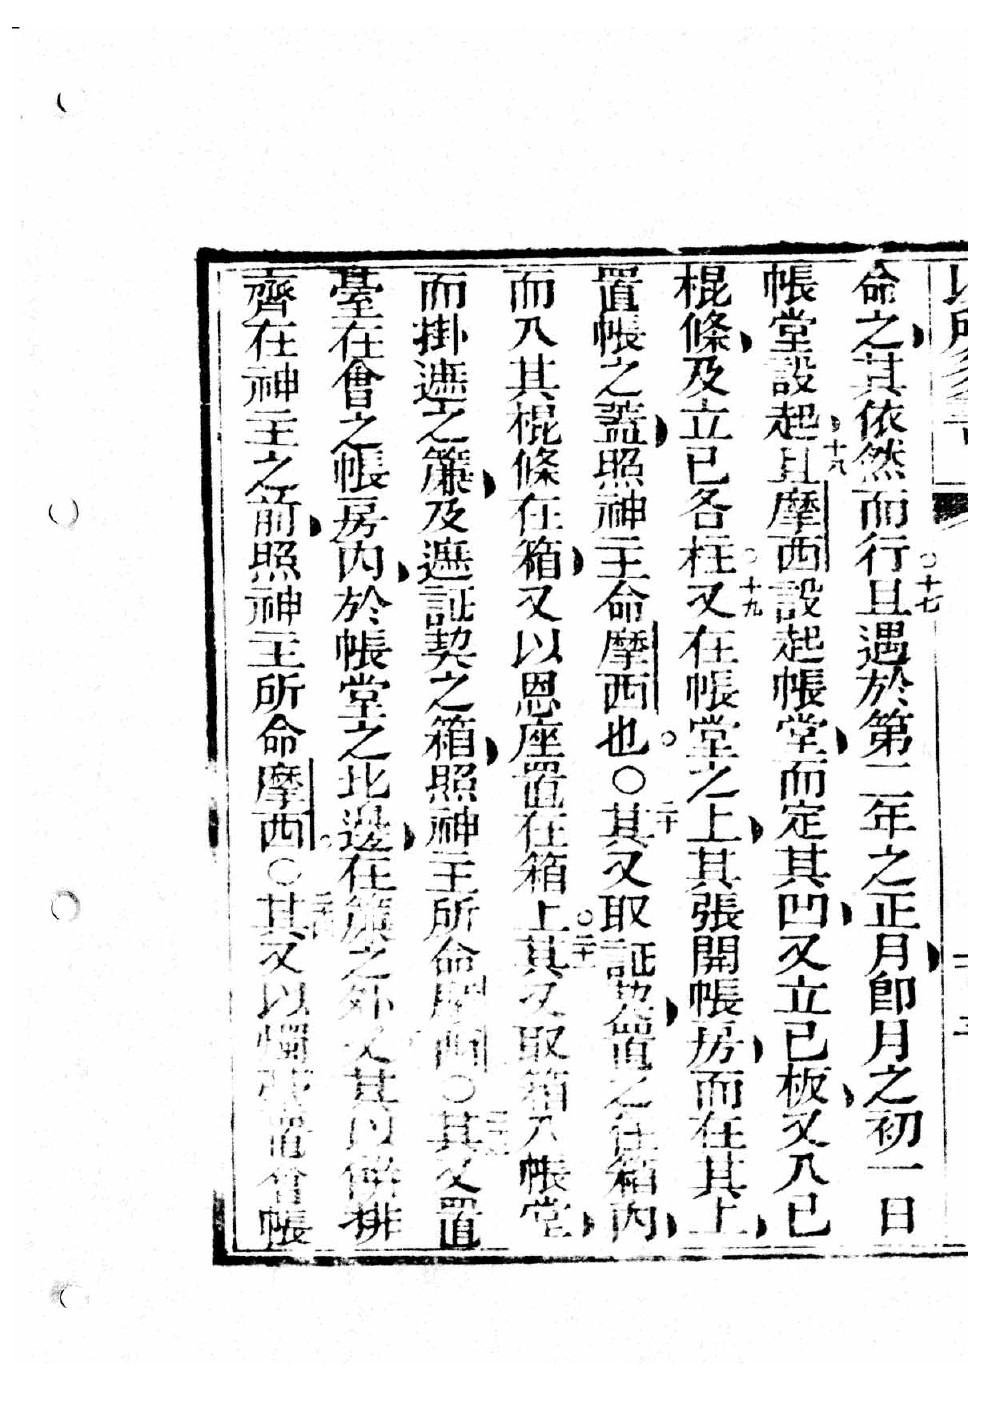 命之其依然而行○十七且遇於第二年之正月即月之初一日
帳堂設起十八且摩西設起帳堂而定其凹又立已板又入已
棍條及立已各柱○十九又在帳堂之上其張開帳房而在其上
置帳之蓋照神主命摩西也○二十其又取証契置之在箱內
而入其棍條在箱又以恩座置在箱上○二十一其又取箱入帳堂
而掛遮之簾及遮証契之箱照神主所命摩西○二十二其又置
臺在會之帳房內於帳堂之北邊在簾之外又其以餅排
齊在神主之前照神主所命摩西○其又以燭臺置會帳